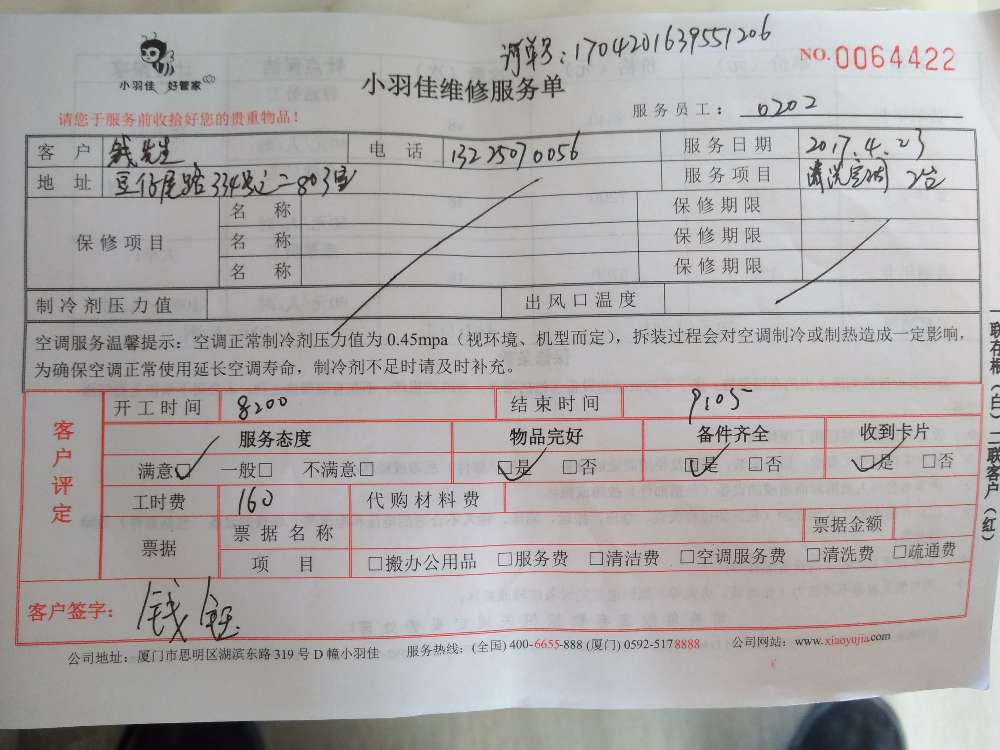 订单号：1704201639551206
NO.0064422
小羽佳 好管家
小羽佳维修服务单
请您于服务前收拾好您的贵重物品！
服务员工： 0202
客户 钱先生 电话 13225070056 服务日期 2017.4.23
地址 豆仔尾路334号之二803室 服务项目 清洗空调 2台
保修项目 名称 保修期限
名称 保修期限
名称 保修期限
制冷剂压力值 出风口温度
空调服务温馨提示：空调正常制冷剂压力值为 0.45mpa（视环境、机型而定），拆装过程会对空调制冷或制热造成一定影响，
为确保空调正常使用延长空调寿命，制冷剂不足时请及时补充。
客户评定
开工时间 8:00 结束时间 9:05
服务态度 物品完好 备件齐全 收到卡片
满意□ 一般□ 不满意□ □是 □否 □是 □否 □是 □否
工时费 160 代购材料费
票据 票据名称 票据金额
项目 □搬办公用品 □服务费 □清洁费 □空调服务费 □清洗费 □疏通费
客户签字： 钱
公司地址：厦门市思明区湖滨东路 319 号 D 幢小羽佳 服务热线：(全国) 400-6655-888 (厦门) 0592-5178888 公司网站：www.xiaoyujia.com
一联存根（白）二联客户（红）